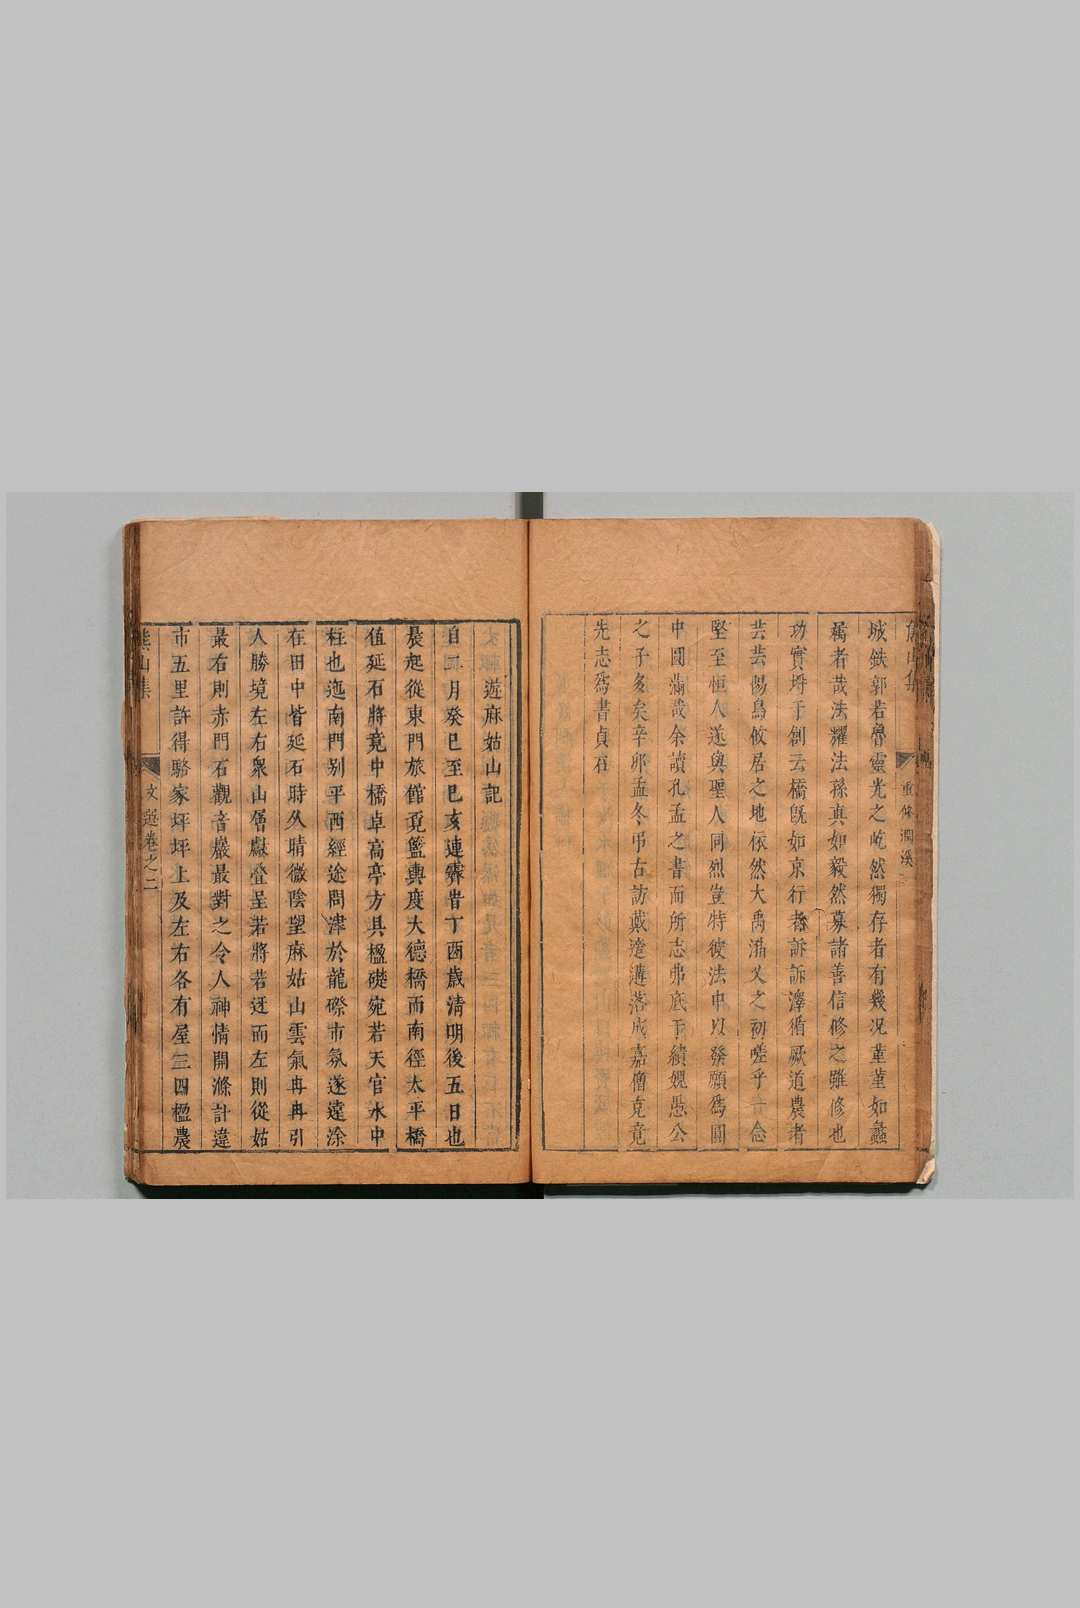 重脩澗溪
城鉄郭若魯靈光之屹然獨存者有幾况菫菫如蠡
蠣者哉法耀法孫真如毅然募諸善信修之雖修也
功實埒于創云橋旣如京行者訴訴澤循厥道農者
芸芸陽鳥攸居之地依然大禹濬乂之初嗟乎一念
堅至恒人遂與聖人同烈豈特彼法中以發願爲圓
中圓滿哉余讀孔孟之書而所志弗底于績媿愚公
之子多矣辛卯孟冬弔古訪戴遵溥落成嘉僧克竟
先志爲書貞石
遊麻姑山記
自二月癸巳至巳亥連霽肯丁酉歲清明後五日也
晨起從東門旅舘覓籃輿度大德橋而南徑太平橋
值延石將竟中橋卓高亭方具楹礎宛若天官水中
柱也迤南門别平西經途問津於龍磜市氛遂遠涂
在田中皆延石時久晴微陰望麻姑山雲氣冉冉引
人勝境左右衆山僧獻疊呈若將若迓而左則從姑
最右則赤門石觀音巖最對之令人神情開滌計違
市五里許得駱家坪坪上及左右各有屋三四楹農
山集
文選卷之二